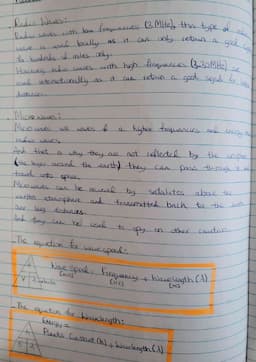 Radio Waves:
Radio waves with low frequencies (3 MHz), this type of
wave is used locally as it can only retain a good
to hundreds of miles only.
However radio waves with high frequencies (3-30MHz)
used internationally as it can retain a good signal
distances.
Microwaves:
Microwaves are waves of a higher frequencies and energy
radio waves.
And that is why they are not reflected by the
(the layer around the earth) they can pass through it
travel into space.
Microwaves can be received by satellites above the
earths atmosphere and transmitted back to the
over long distances.
And they can be used to spy on other countries.
The equation for wave speed:
Wave speed = Frequency × Wavelength (λ)
(m/s) (Hz) (m)
The equation for Wavelength:
Energy =
Plancks Constant (h) ÷ Wavelength (λ)